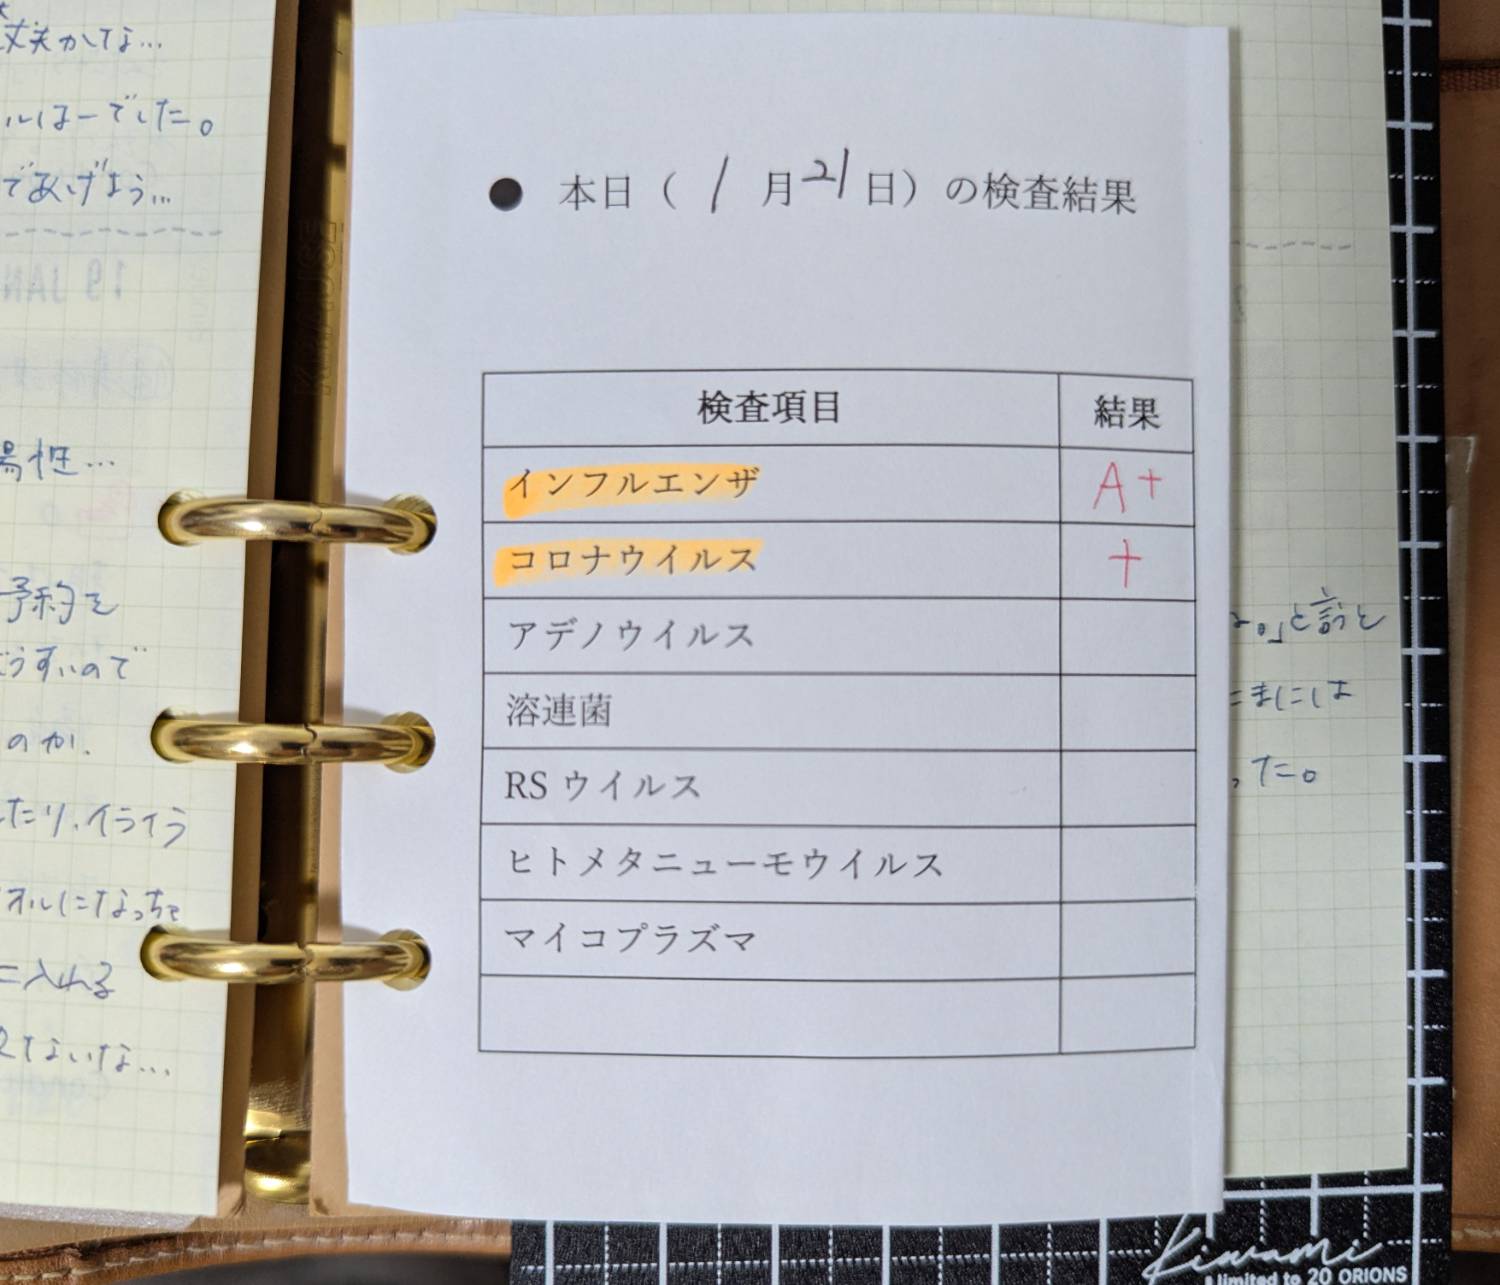 丈夫かしな…
ルはーでした。
であげよう…
19 JAN
陽性…
予約を
どうすいので
のか.
たり、イライラ
オルになっちて
に入れる
ないな…
● 本日（ 1 月 21 日）の検査結果
検査項目 結果
インフルエンザ A+
コロナウイルス +
アデノウイルス
溶連菌
RS ウイルス
ヒトメタニューモウイルス
マイコプラズマ
。」と言うと
たまには
った。
Kiwami
limited to 20 ORIONS